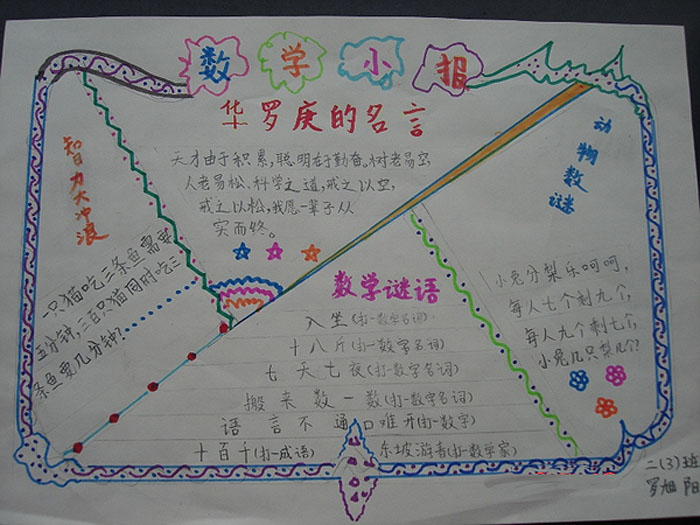 数学小报
华罗庚的名言
天才由于积累,聪明在于勤奋。树老易空,
人老易松、科学之道,戒之以空,
戒之以松,我愿一辈子从
实而终。
智力大冲浪
一只猫吃三条鱼需要
五分钟,三百只猫同时吃三
条鱼要几分钟?
动物数谜
小兔分梨乐呵呵,
每人七个剩九个,
每人九个剩七个,
小兔几只梨几个?
数学谜语
入坐(打一数字名词)
十八斤(打一数字名词)
七天七夜(打一数学名词)
搬来数一数(打一数学名词)
语言不通口难开(打一数字)
十百千(打一成语)
东坡游春(打一数学家)
二(3)班
罗旭阳